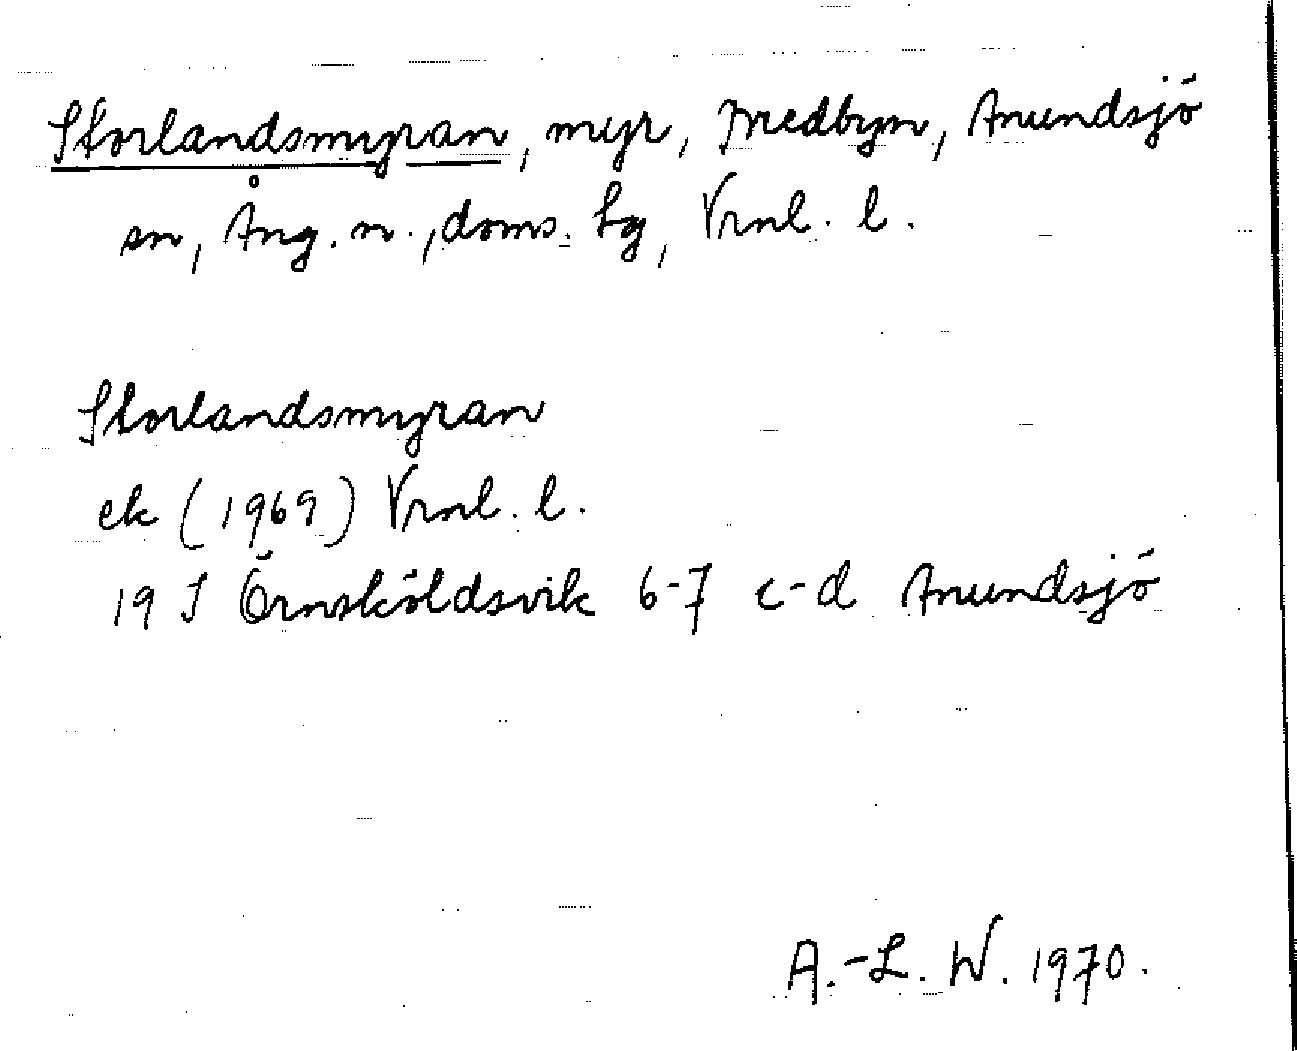 Storlandsmyran, myr, Medbyn, Anundsjö
sn, Ång. n., doms. hg, Vrnl. l.
Storlandsmyran
ek (1969) Vrnl. l.
19 J Örnsköldsvik 6-7 c-d Anundsjö
A.-L. W. 1970.